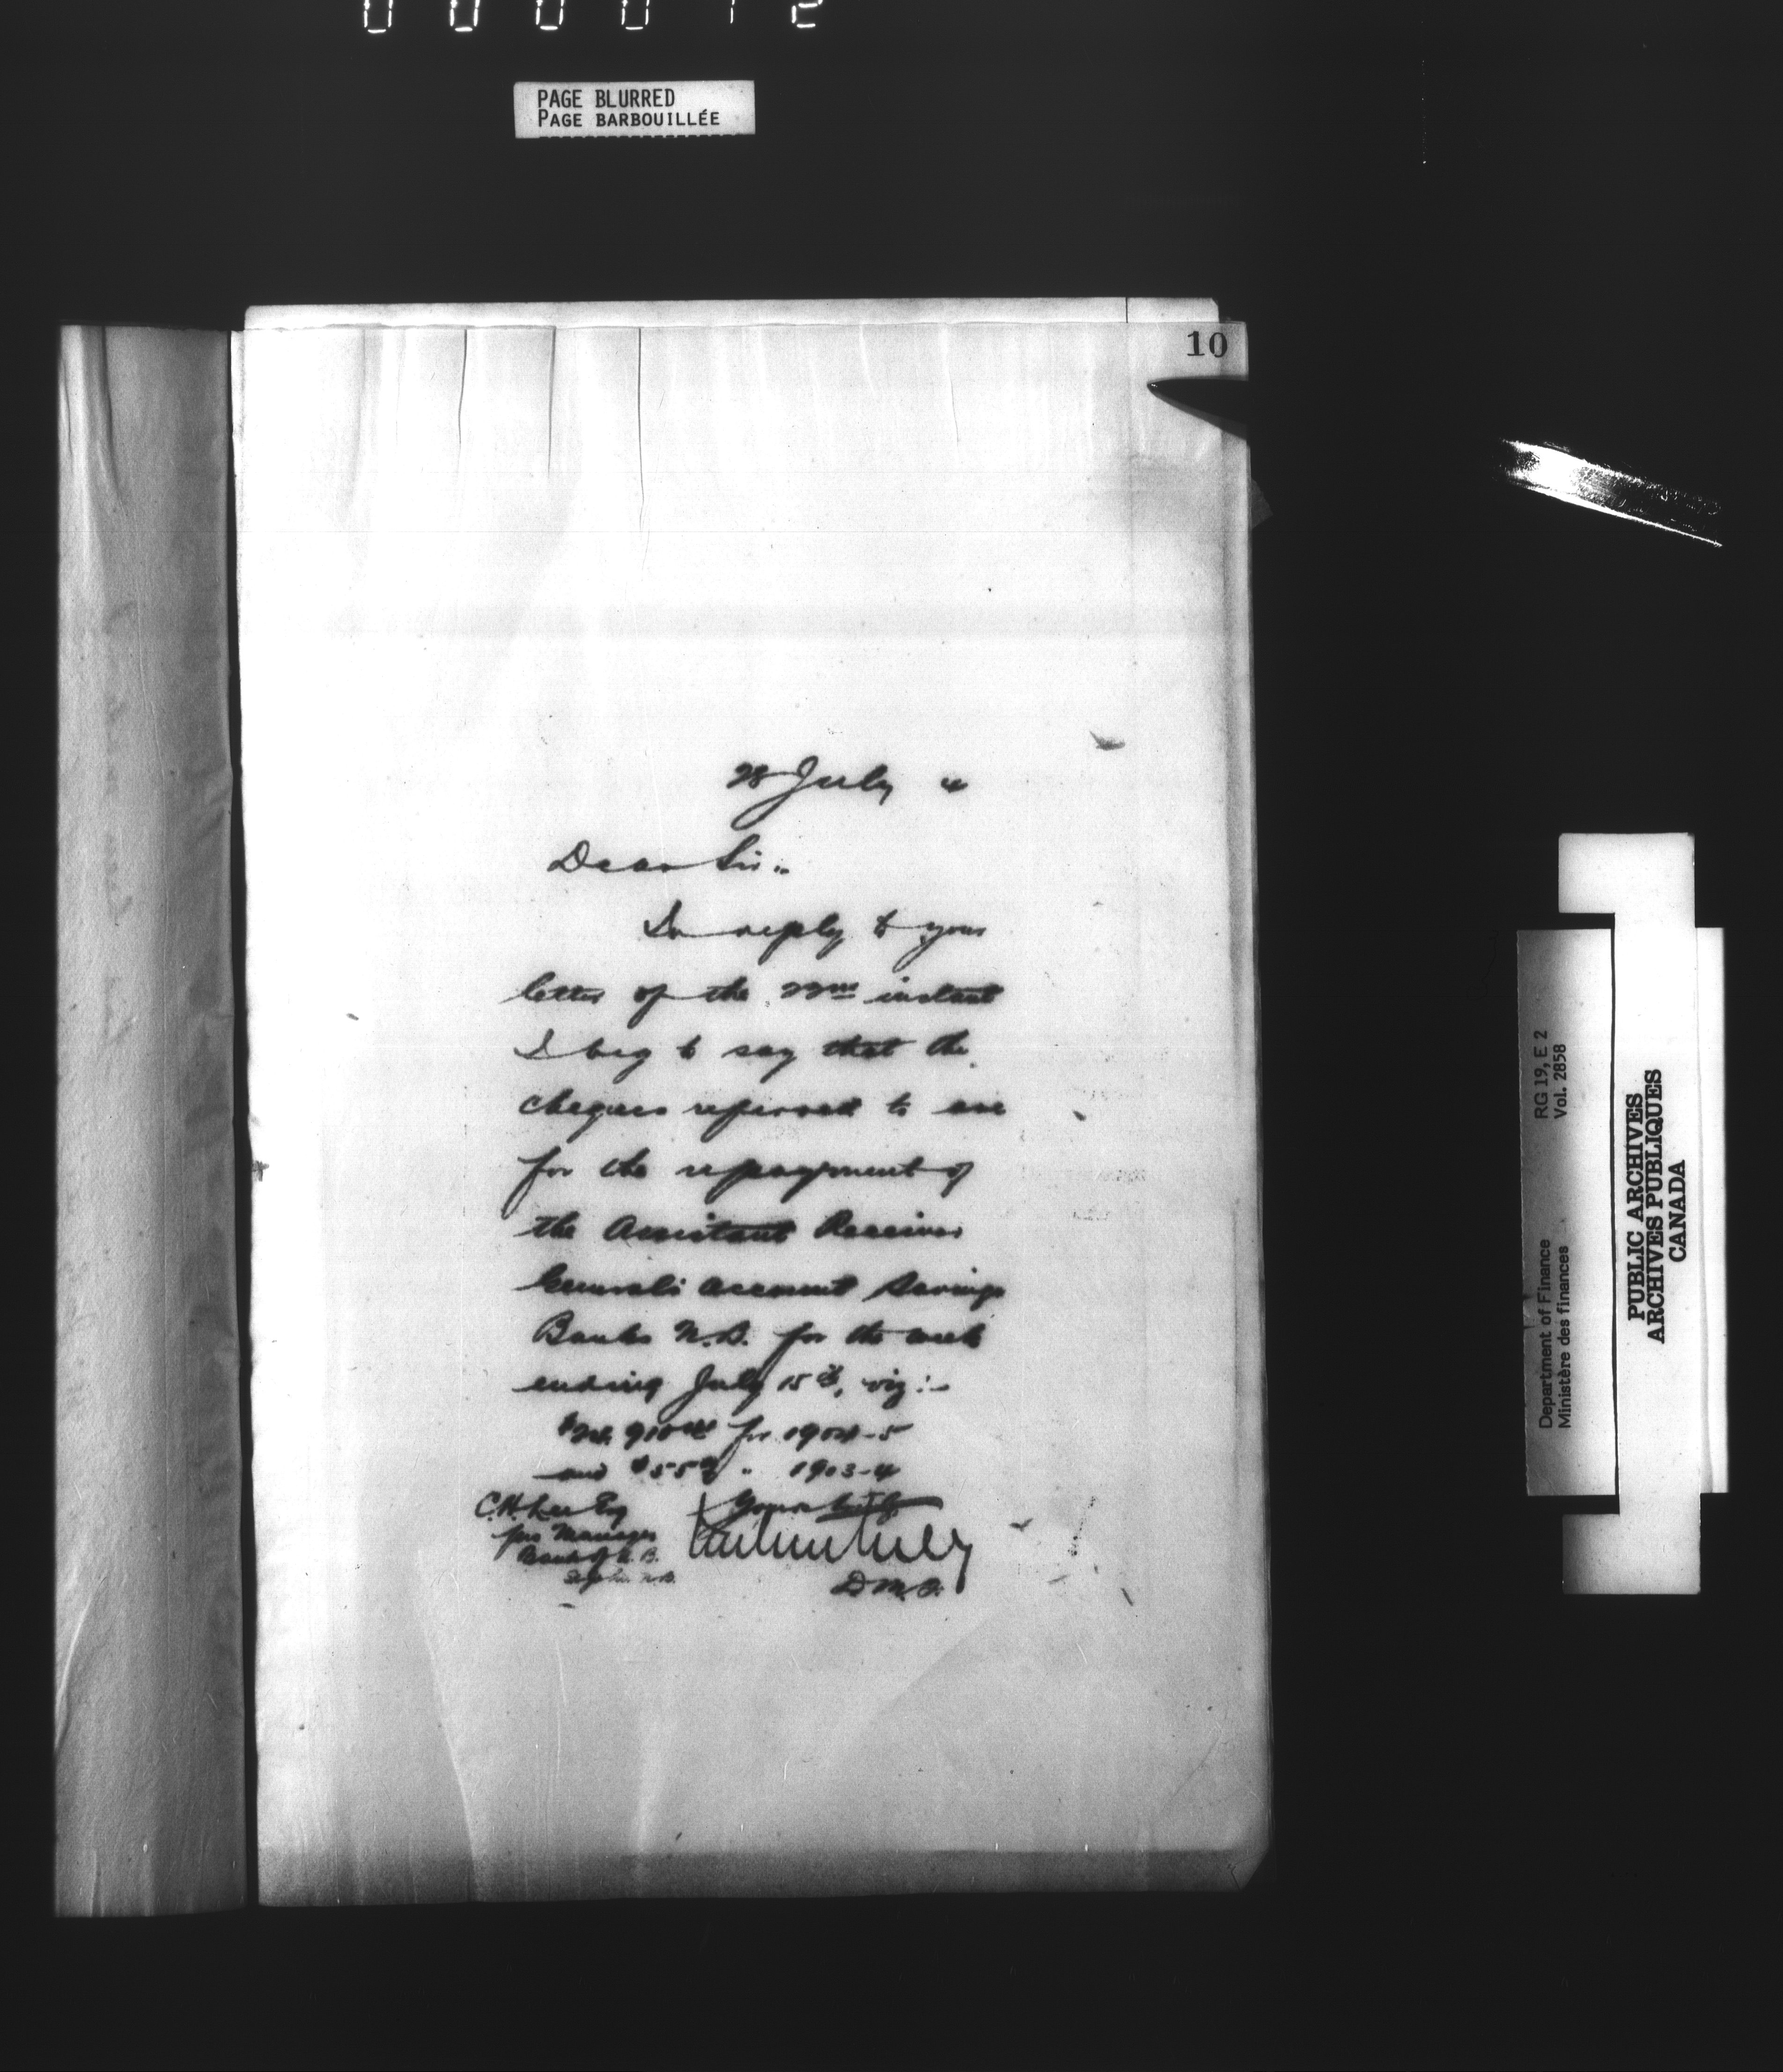 PAGE BLURRED
PAGE BARBOUILLÉE
10
28 July 4
Dear Sir..
In reply to your
letter of the 22nd instant
I beg to say that the
cheques referred to are
for the repayment of
the Assistant Receiver
General's account Savings
Banks N.B. for the week
ending July 15th, viz:-
for 1904-5
and $55 " 1903-4
C.H. Lee Esq
pro Manager
Bank of N.B.
St John N.B.
Yours truly
D.M.F.
Department of Finance RG 19, E 2
Ministère des finances Vol. 2858
PUBLIC ARCHIVES
ARCHIVES PUBLIQUES
CANADA